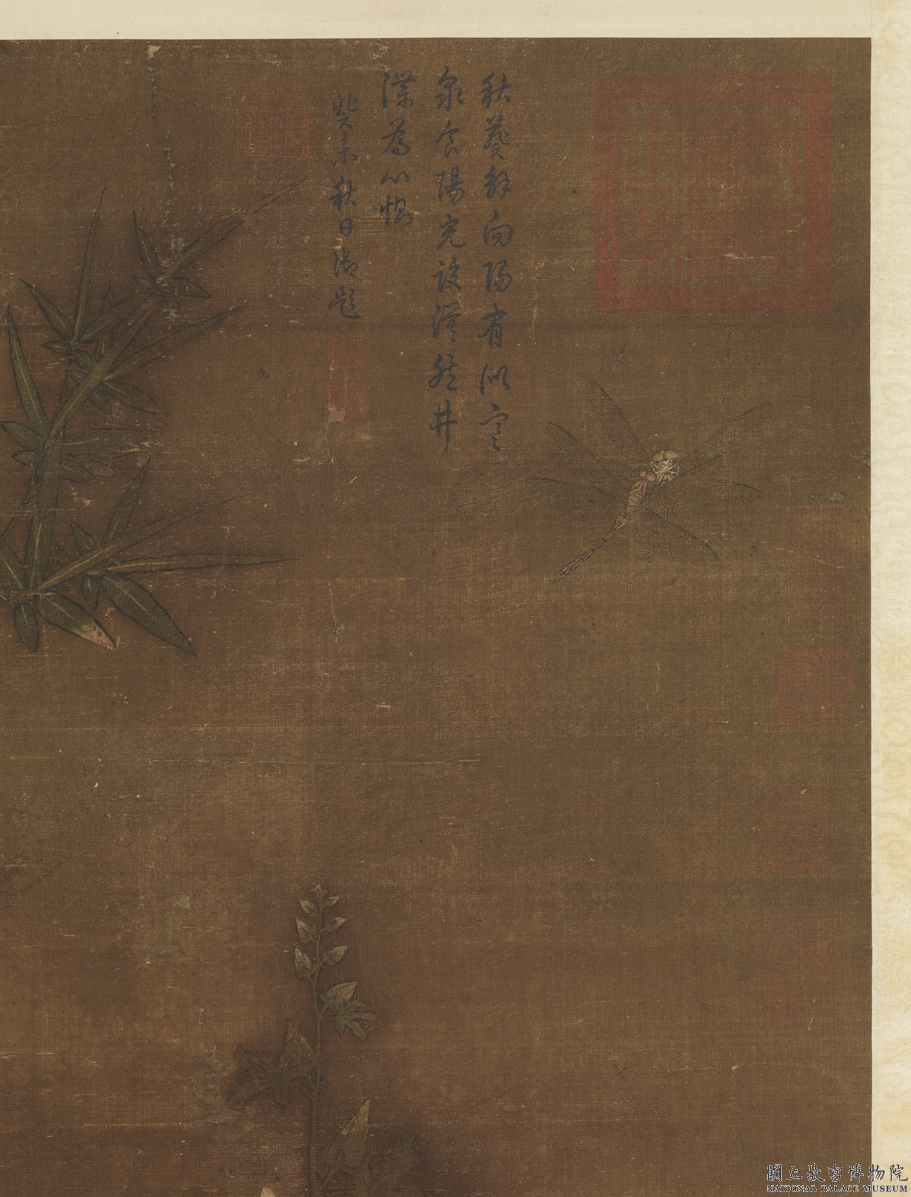 秋葵解向陽有似寒
泉食陽光設漠然井
渫為心惻
癸未秋日御題
國立故宮博物院
NATIONAL PALACE MUSEUM